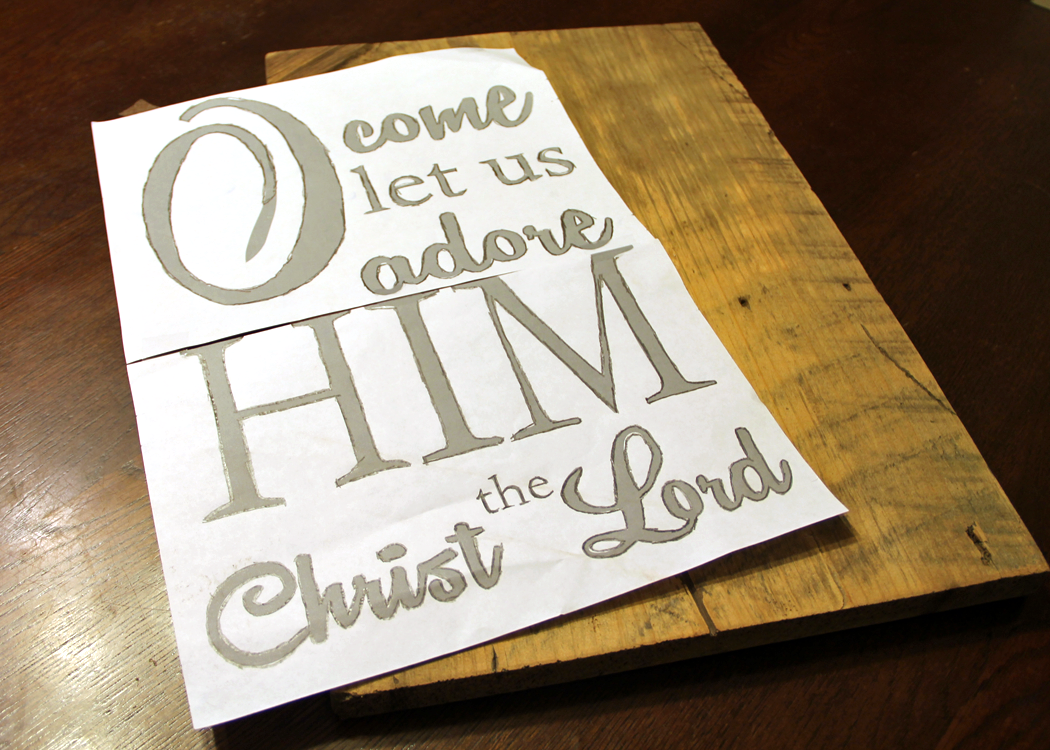 O come
let us
adore
HIM
the Lord
Christ